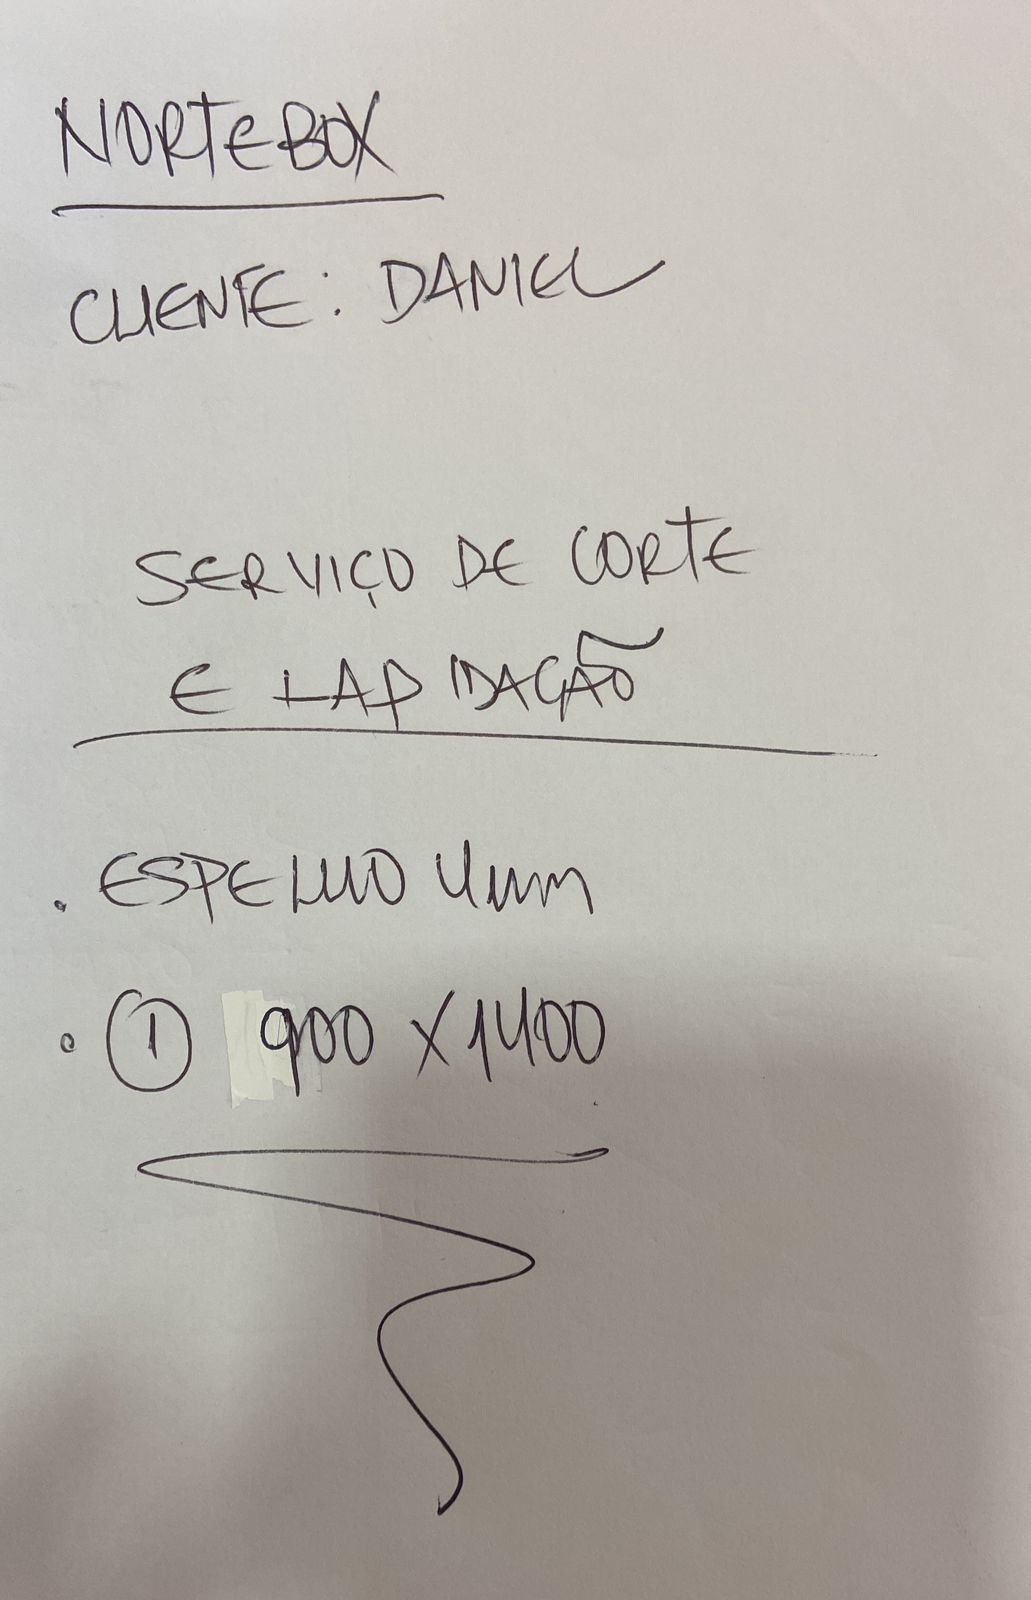 NORTEBOX
CLIENTE: DANIEL
SERVIÇO DE CORTE
E LAPIDAÇÃO
. ESPELHO 4mm
. 1 900 X 1400